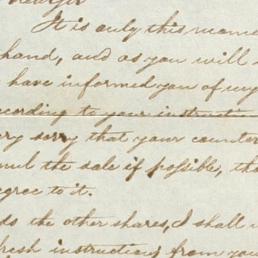 It is only this mome
hand, and as you will
have informed you of my
according to your instructio
ery sorry that your counter
nul the sale if possible, tho
gree to it.
ds the other shares, I shall
fresh instructions from you